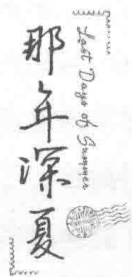 那年深夏
Last Days of Summer